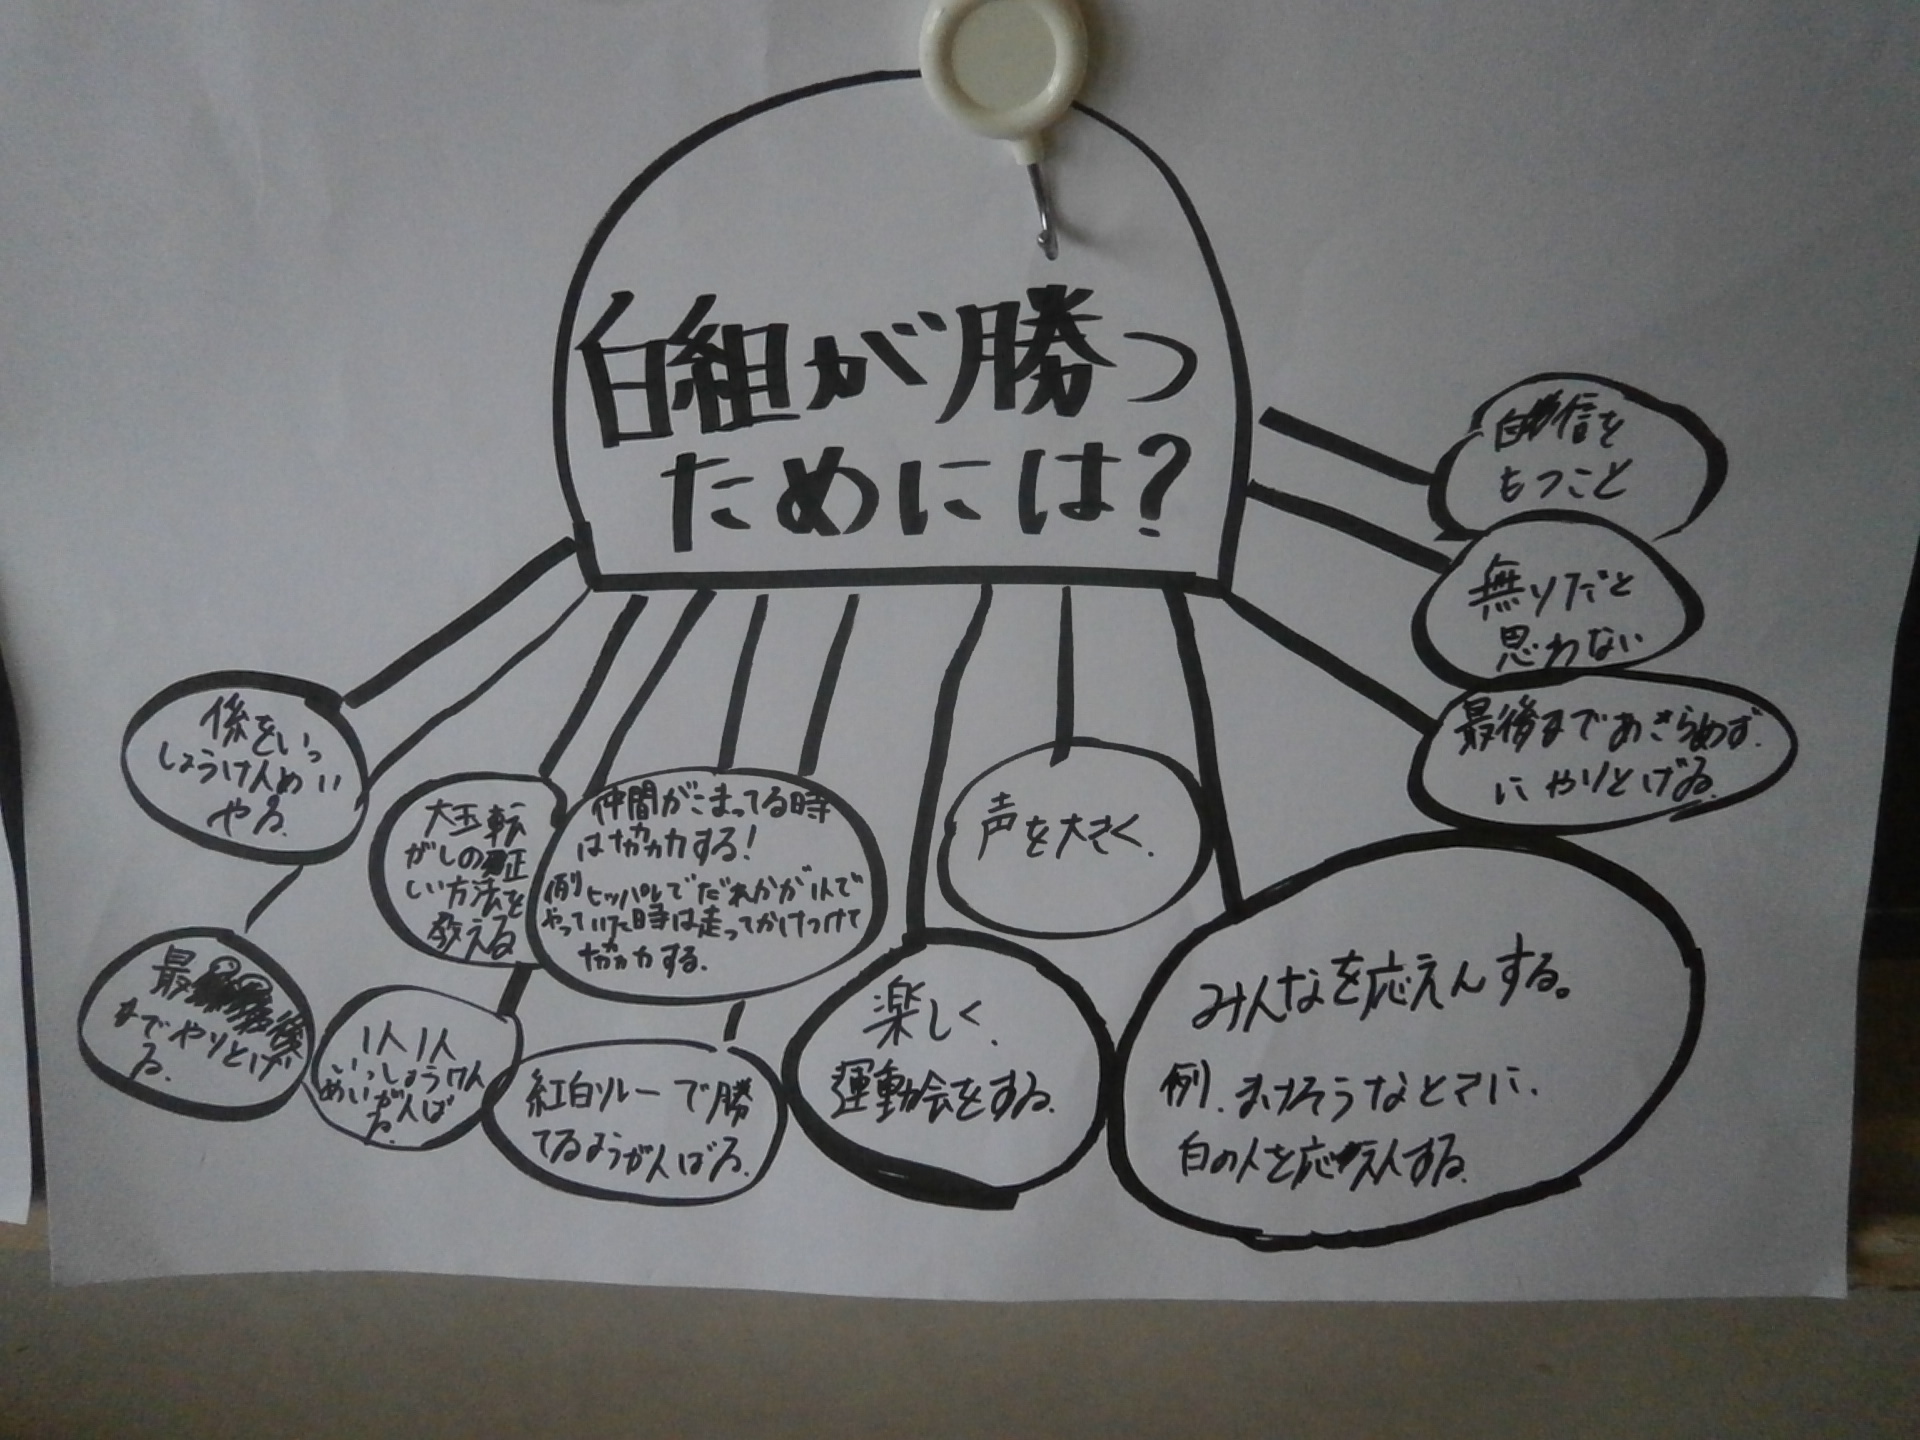 白組が勝つ
ためには?
自信を
もつこと
無リだと
思わない
最後まであきらめず
にやりとげる
係をいっ
しょうけんめい
やる。
大玉転
がしの正
しい方法を
教える
仲間がこまってる時
は協力する!
例 ヒッパレでだれかが1人で
やっていた時は走ってかけつけて
協力する。
声を大きく。
最後
までやりとげ
る。
1人1人
いっしょうけん
めいがんば
る。
紅白リレーで勝
てるようがんばる。
楽しく、
運動会をする。
みんなを応えんする。
例.まけそうなときに、
白の人を応えんする。